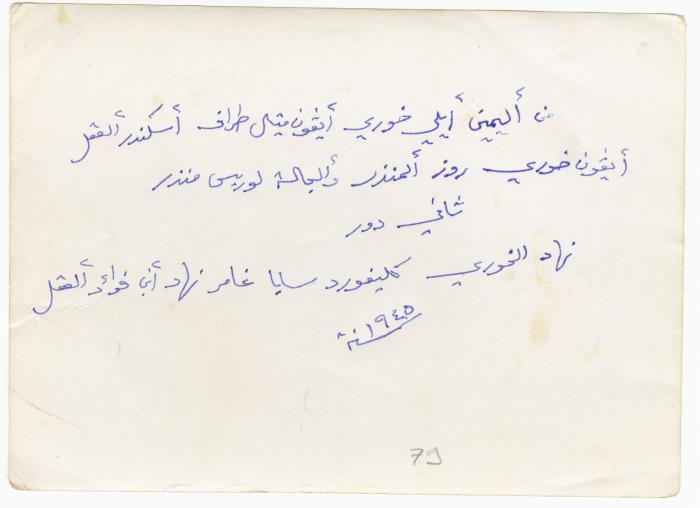 من أليمين أيلي خوري أيڤون متيل طراف أسكندر ألعقل
أيڤون خوري روز ألمنذر وألجالسة لوريس منذر
ثاني دور
نهاد الخوري كليفورد سابا غامر نهاد أبي فوائد ألعقل
سنة ١٩٤٥
79